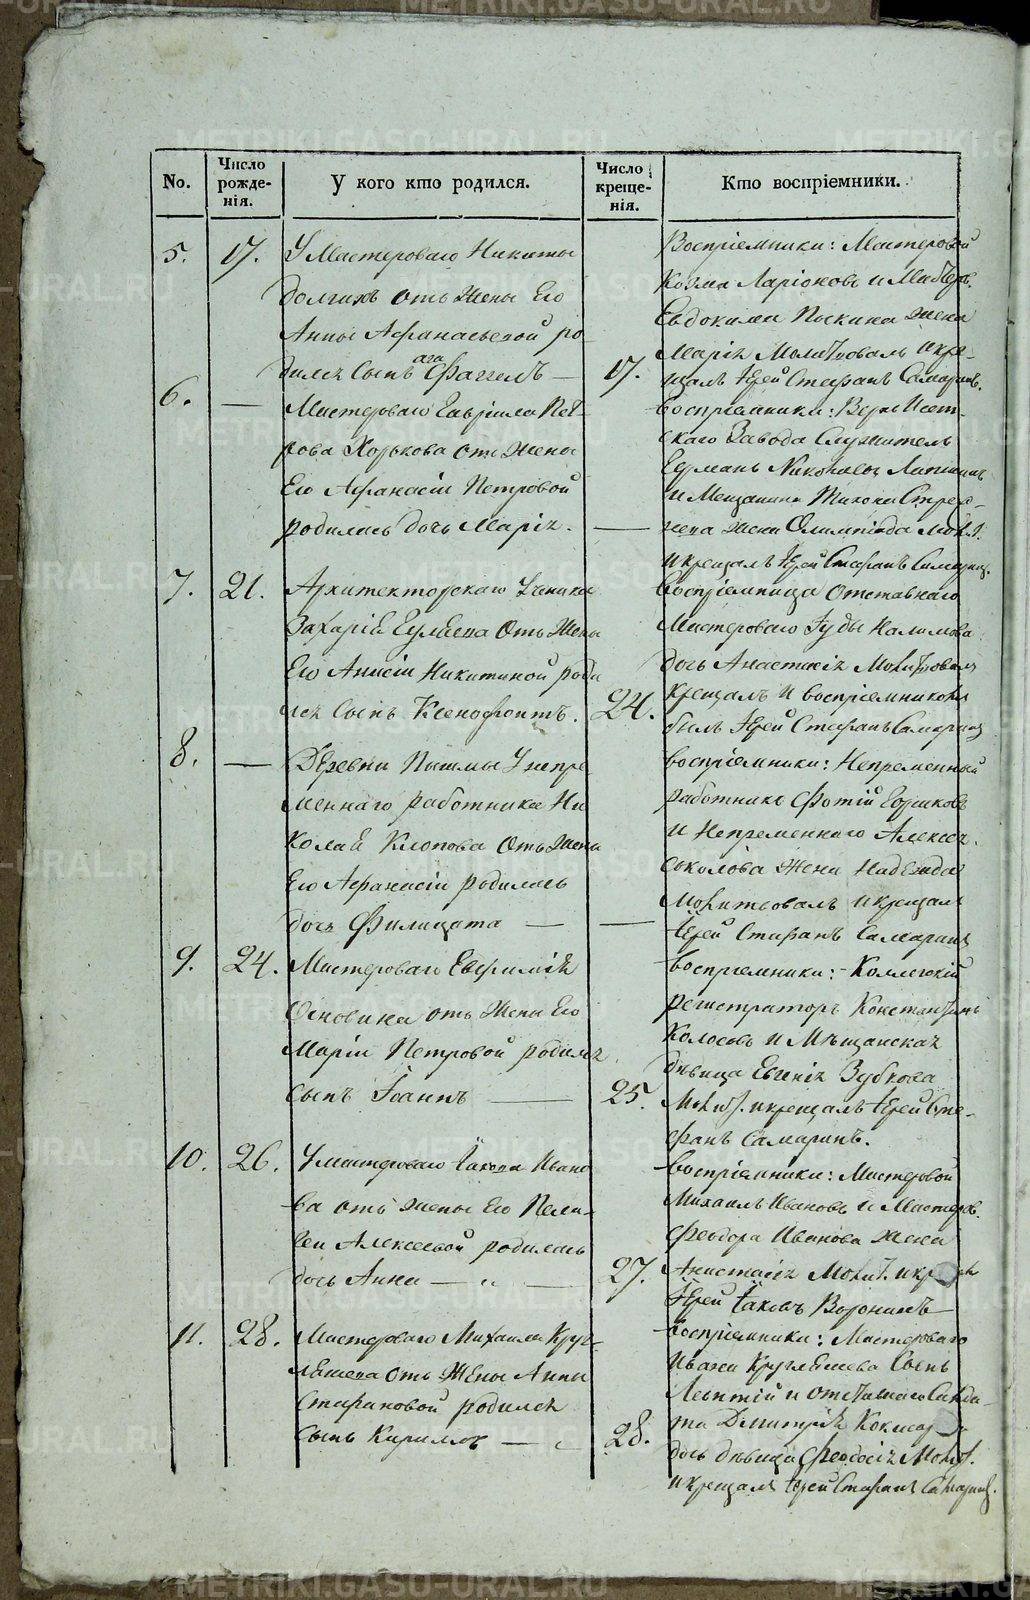 METRIKI.GASO-URAL.RU
No.
Число рожде- нія.
У кого кто родился.
Число креще- нія.
Кто воспріемники.
5. 17.
У Мастероваго Никиты
Долгихъ отъ жены Его
Анны Афанасьевой ро-
дился Сынъ
17.
Воспріемники: Мастеровой
Козма Ларіоновъ и Мастеров.
Евдокима Пыкина жена
Марія Молитвовалъ и кре-
щалъ Іерей Стефанъ Самаринъ.
6. —
Мастероваго Гавріила Пет-
рова Хорькова отъ жены
Его Афанасіи Петровой
родилась дочь Марія.
—
Воспріемники: Верхъ Исет-
скаго Завода Служитель
Николаевъ
и Мещанина Тихона
жена Олимпіада Молит.
и крещалъ Іерей Стефанъ Самаринъ.
7. 21.
Архитекторскаго Ученика
Захарія Еуляева отъ жены
Его Анисіи Никитиной роди
лся Сынъ Ксенофонтъ.
24.
Воспріемница Отставнаго
Мастероваго Іуды Налимова
дочь Анастасія Молитвовалъ
Крещалъ и воспріемникомъ
былъ Іерей Стефанъ Самаринъ
8. —
Деревни Пышмы У непре
меннаго работника Ни
колая Клопова отъ жены
Его Афанасіи родилась
дочь Филицата —
—
воспріемники: Непременный
работникъ Фотій
и Непременнаго Алексея
Соколова жена Надежда
Молитвовалъ и крещалъ
Іерей Стефанъ Самаринъ
9. 24.
Мастероваго Евфимія
Основина отъ жены Его
Маріи Петровой родился
сынъ Іоаннъ —
25.
воспріемники: Коллегскій
регистраторъ Константинъ
Колосовъ и Мѣщанская
дѣвица Евгенія Зубкова
Молит. и крещалъ Іерей Сте-
фанъ Самаринъ.
10. 26.
У мастероваго Іакова Ивано
ва отъ жены Его Пела-
геи Алексеевой родилась
дочь Анна — „ —
27.
воспріемники: Мастеровой
Михаилъ Ивановъ и Мастеров.
Феодора Иванова жена
Анастасія Молит. и кр
Іерей Іаковъ Воронинъ
11. 28.
Мастероваго Михаила Круг-
ляшева отъ жены Анны
Стефановой родился
сынъ Кириллъ —
28.
воспріемники: Мастероваго
Ивана Кругляшева Сынъ
Леонтій и отставнаго Солда-
та Димитрія
дочь дѣвица Феодосія Молит.
и крещалъ Іерей Стефанъ Самаринъ.